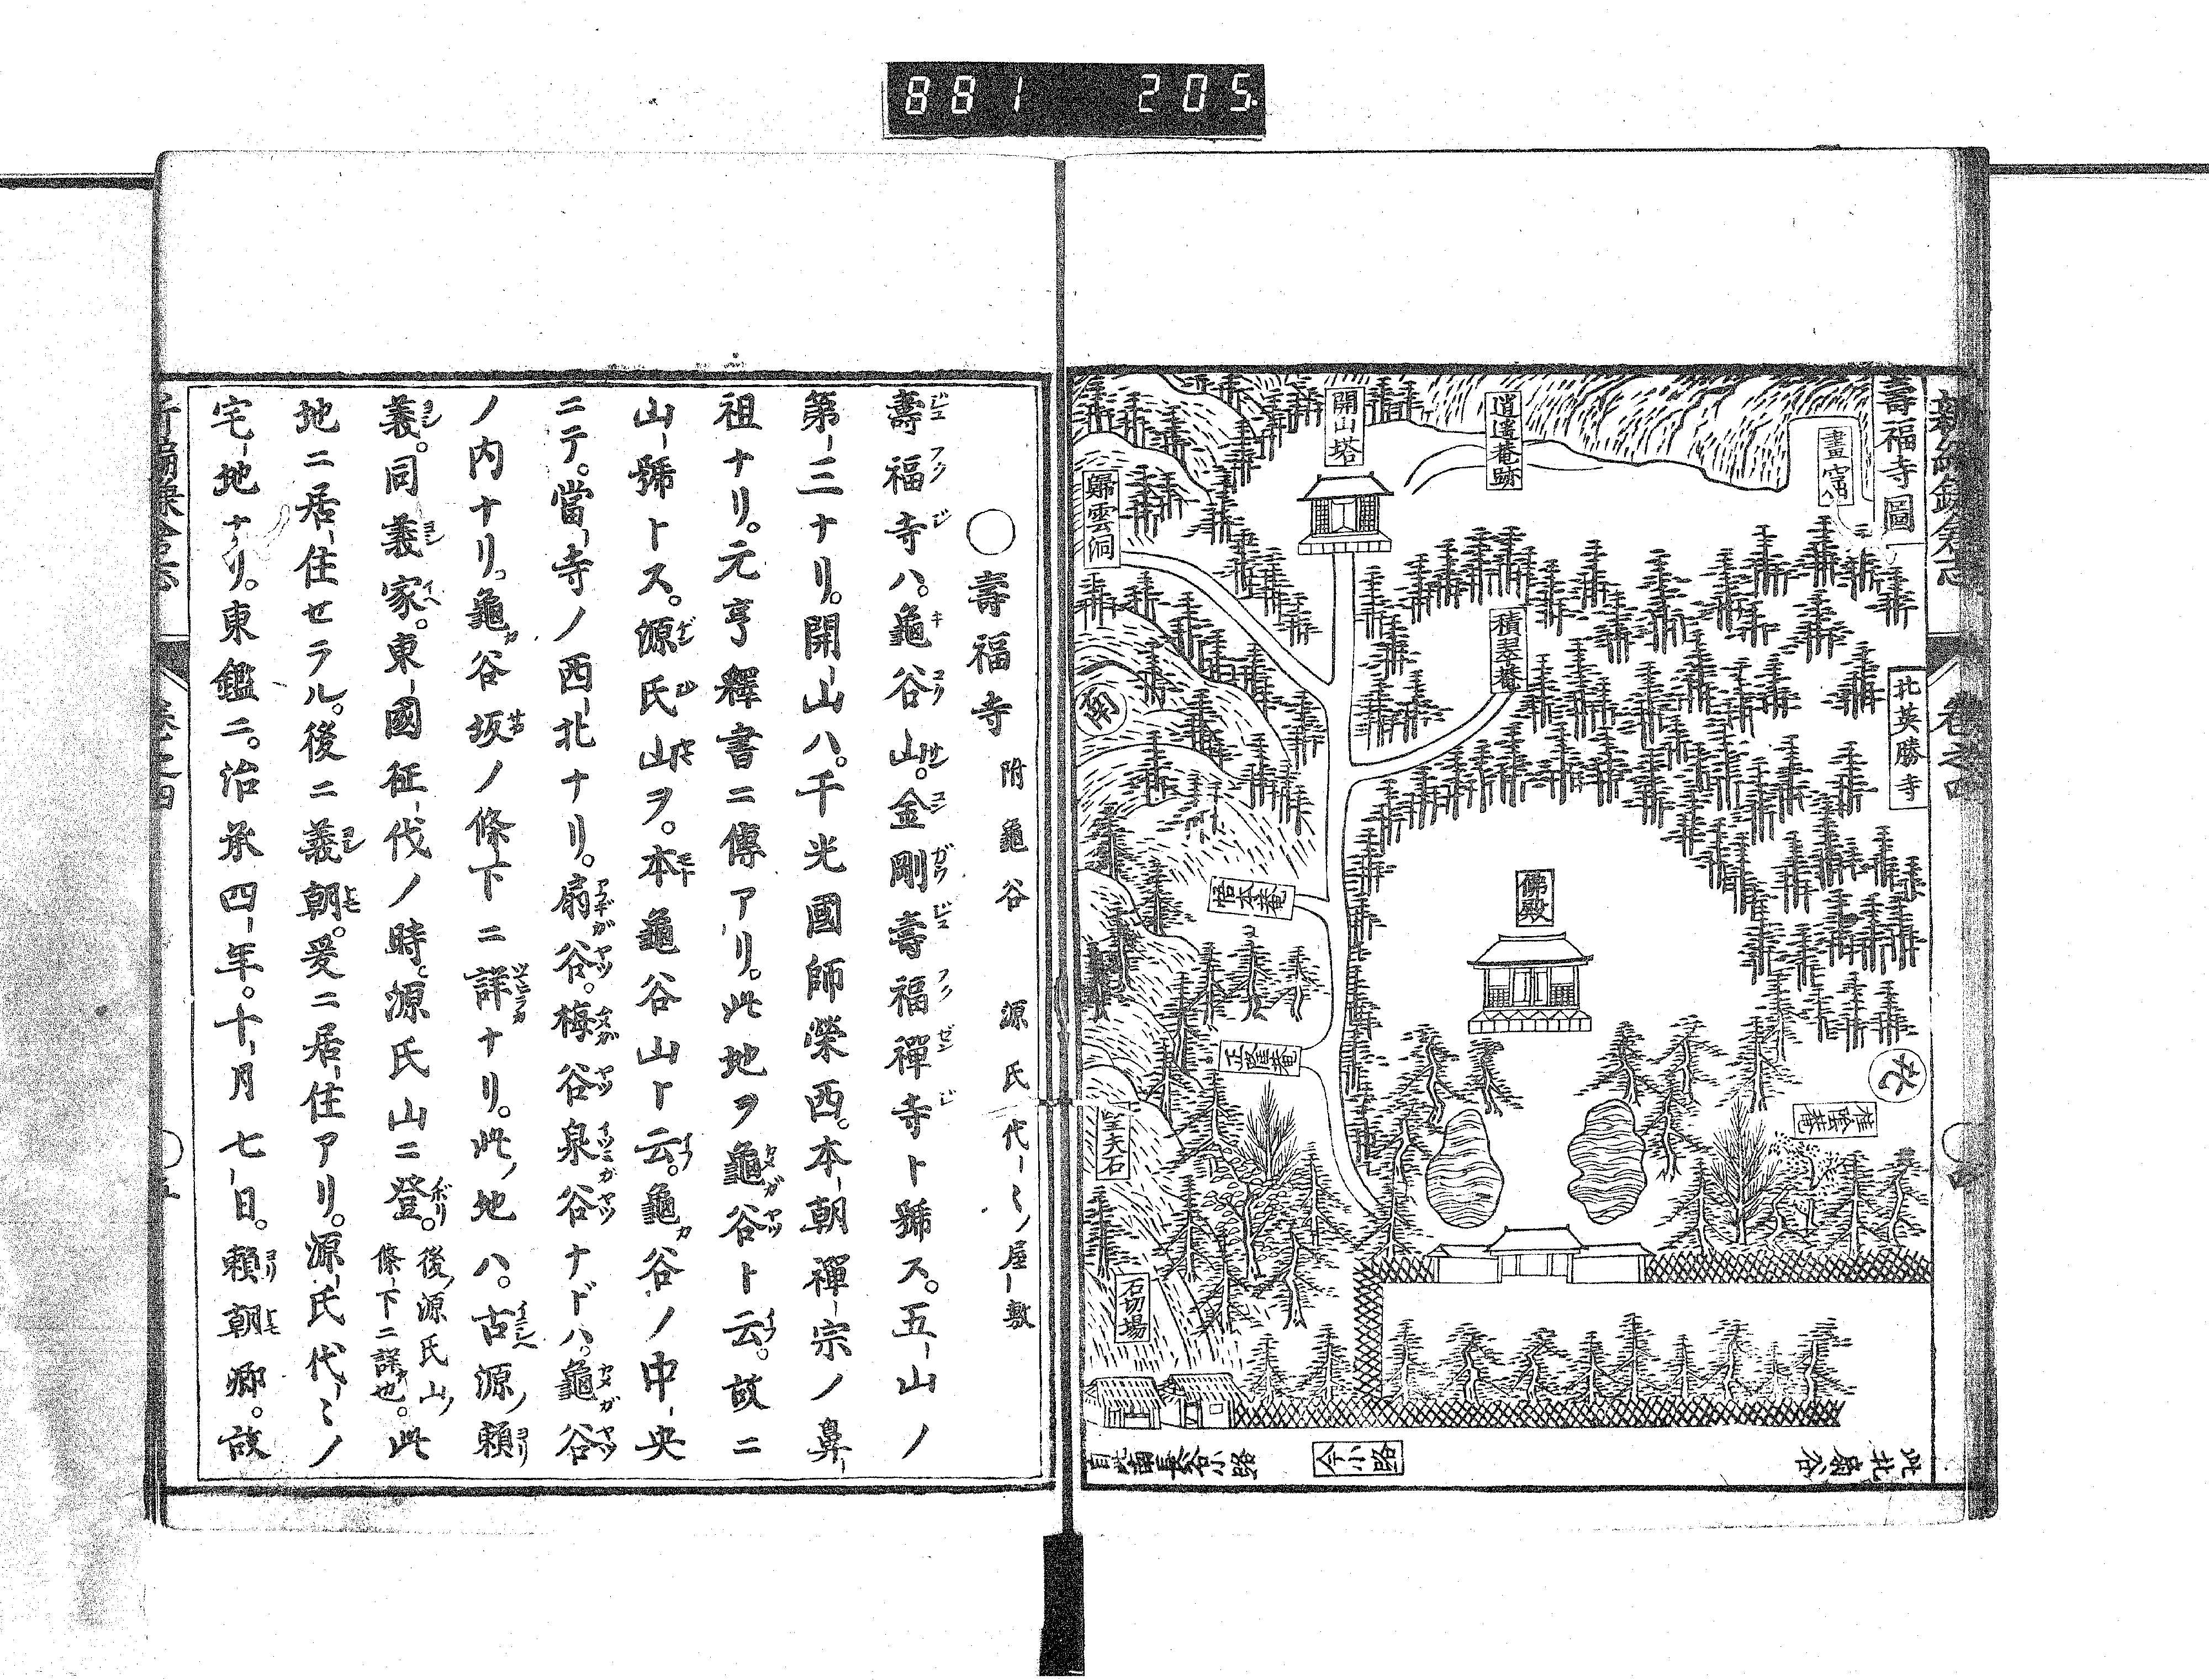 881 205
新編鎌倉志
卷之四
壽福寺圖
畫窟
北英勝寺
逍遙菴跡
開山塔
歸雲洞
積翠菴
南
佛殿
悟本菴
正隆菴
北
桂蔭菴
望夫石
石切場
此北扇谷
今小路
自此南長谷小路
○壽福寺 附龜谷 源氏代〻ノ屋敷
壽福寺ハ。龜谷山。金剛壽福禪寺ト號ス。五山ノ
第三ナリ。開山ハ。千光國師榮西。本朝禪宗ノ鼻
祖ナリ。元亨釋書ニ傳アリ。此地ヲ龜谷ト云。故ニ
山號トス。源氏山ヲ。本龜谷山ト云。龜谷ノ中央
ニテ。當寺ノ西北ナリ。扇谷。梅谷泉谷ナドハ。龜谷
ノ内ナリ。龜谷坂ノ條下ニ詳ナリ。此ノ地ハ。古源ノ頼
義。同義家。東國征伐ノ時。源氏山ニ登。後ノ源氏山ノ條下ニ詳也。此
地ニ居住セラル。後ニ義朝。爰ニ居住アリ。源氏代〻ノ
宅地ナリ。東鑑ニ。治承四年。十月七日。頼朝卿。故